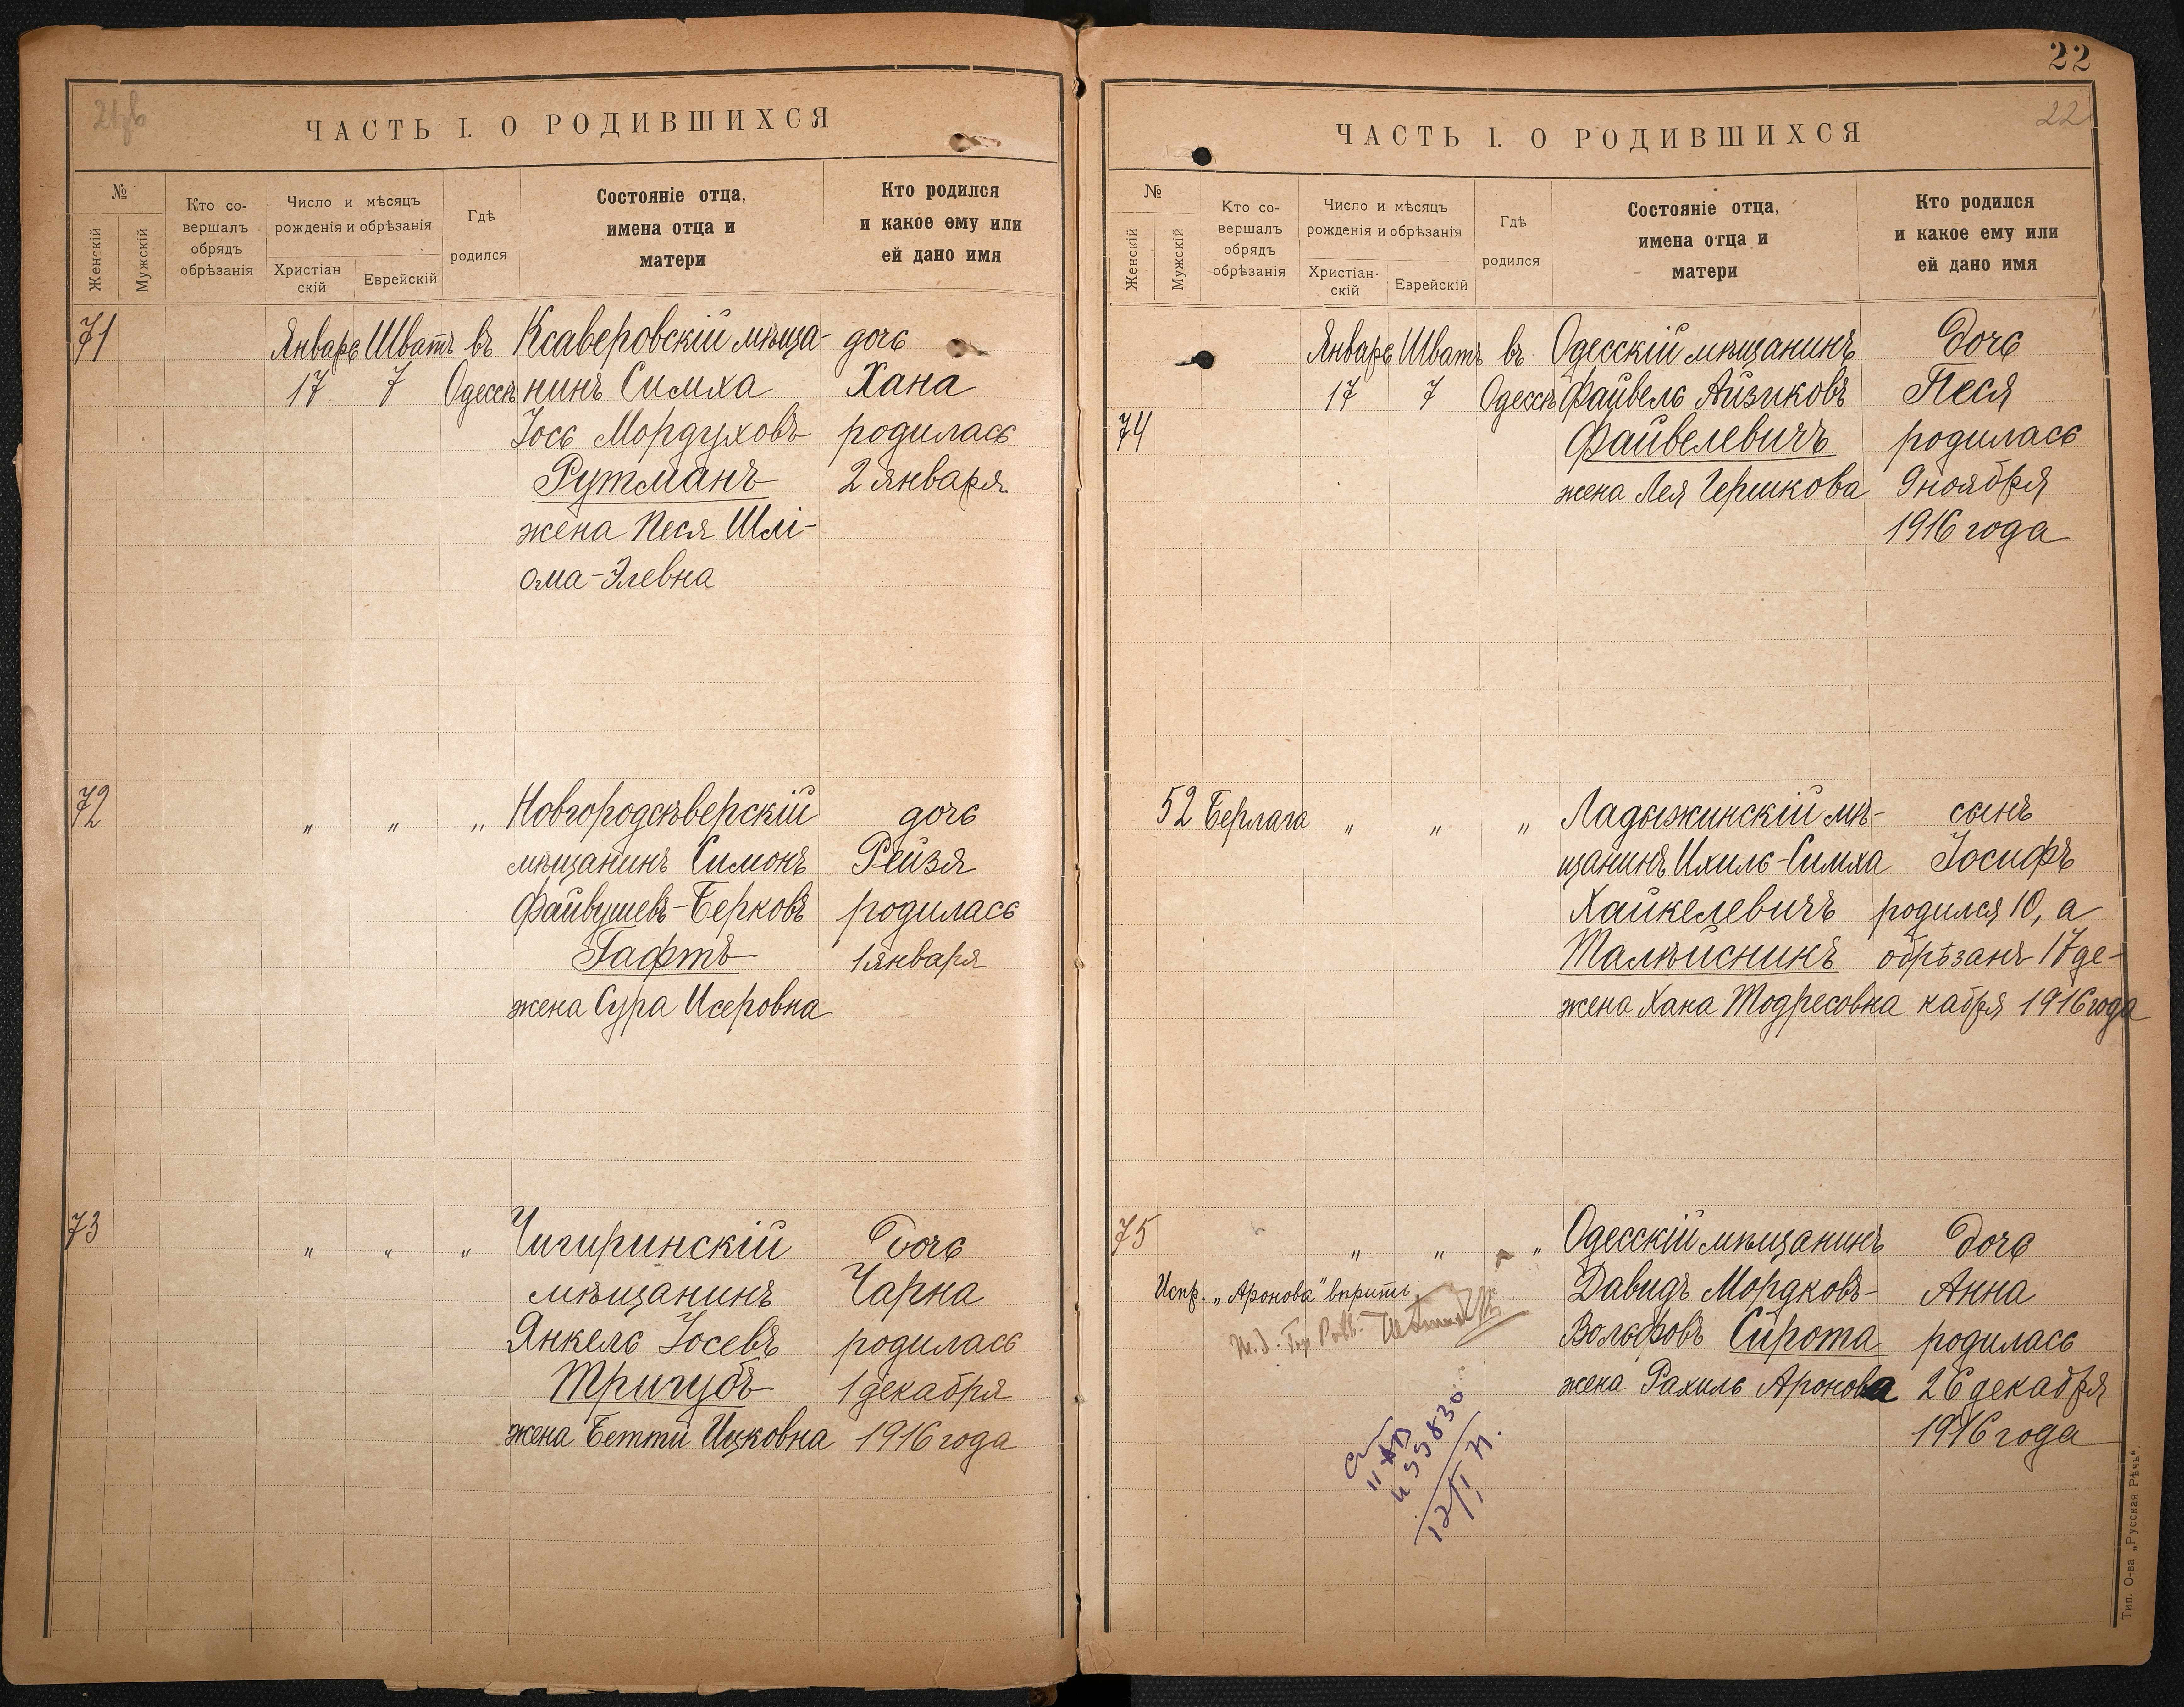 ЧАСТЬ I. О РОДИВШИХСЯ
№
Женскій
Мужскій
Кто со-
вершалъ
обрядъ
обрѣзанія
Число и мѣсяцъ
рожденія и обрѣзанія
Христіан
скій
Еврейскій
Гдѣ
родился
Состояніе отца,
имена отца и
матери
Кто родился
и какое ему или
ей дано имя
71
Январь Шватъ въ Ксаверовскій мѣща- дочь
17 7 Одессѣ нинъ Симха Хана
Іось Мордуховъ родилась
Рутманъ 2 января
жена Песя Шлі-
ома-Элевна
72
„ „ „ Новгородсѣверскій дочь
мѣщанинъ Симонъ Рейзя
Файвушевъ-Берковъ родилась
Гафтъ 1 января
жена Сура Исеровна
73
„ „ „ Чигиринскій дочь
мѣщанинъ Чарна
Янкель Іосевъ родилась
Тригубъ 1 декабря
жена Бетти Ицковна 1916 года
22
22
ЧАСТЬ I. О РОДИВШИХСЯ
№
Женскій
Мужскій
Кто со-
вершалъ
обрядъ
обрѣзанія
Число и мѣсяцъ
рожденія и обрѣзанія
Христіан-
скій
Еврейскій
Гдѣ
родился
Состояніе отца,
имена отца и
матери
Кто родился
и какое ему или
ей дано имя
Январь Шватъ въ Одесскій мѣщанинъ дочь
17 7 Одессѣ Файвель Айзиковъ Песя
74 Файвелевичъ родилась
жена Лея Гершкова 9 ноября
1916 года
52 Берлага „ „ „ Ладыжинскій мѣ- сынъ
щанинъ Ихиль-Симха Іосифъ
Хайкелевичъ родился 10, а
Талѣисникъ обрѣзанъ 17 де-
жена Хана Тодресовна кабря 1916 года
75 „ „ „ Одесскій мѣщанинъ дочь
Испр. „Аронова" вѣрить Давидъ Мордковъ- Анна
Вольфовъ Сирота родилась
жена Рахиль Аронова 26 декабря
1916 года
12/I 71.
Тип. О-ва „Русская Рѣчь".